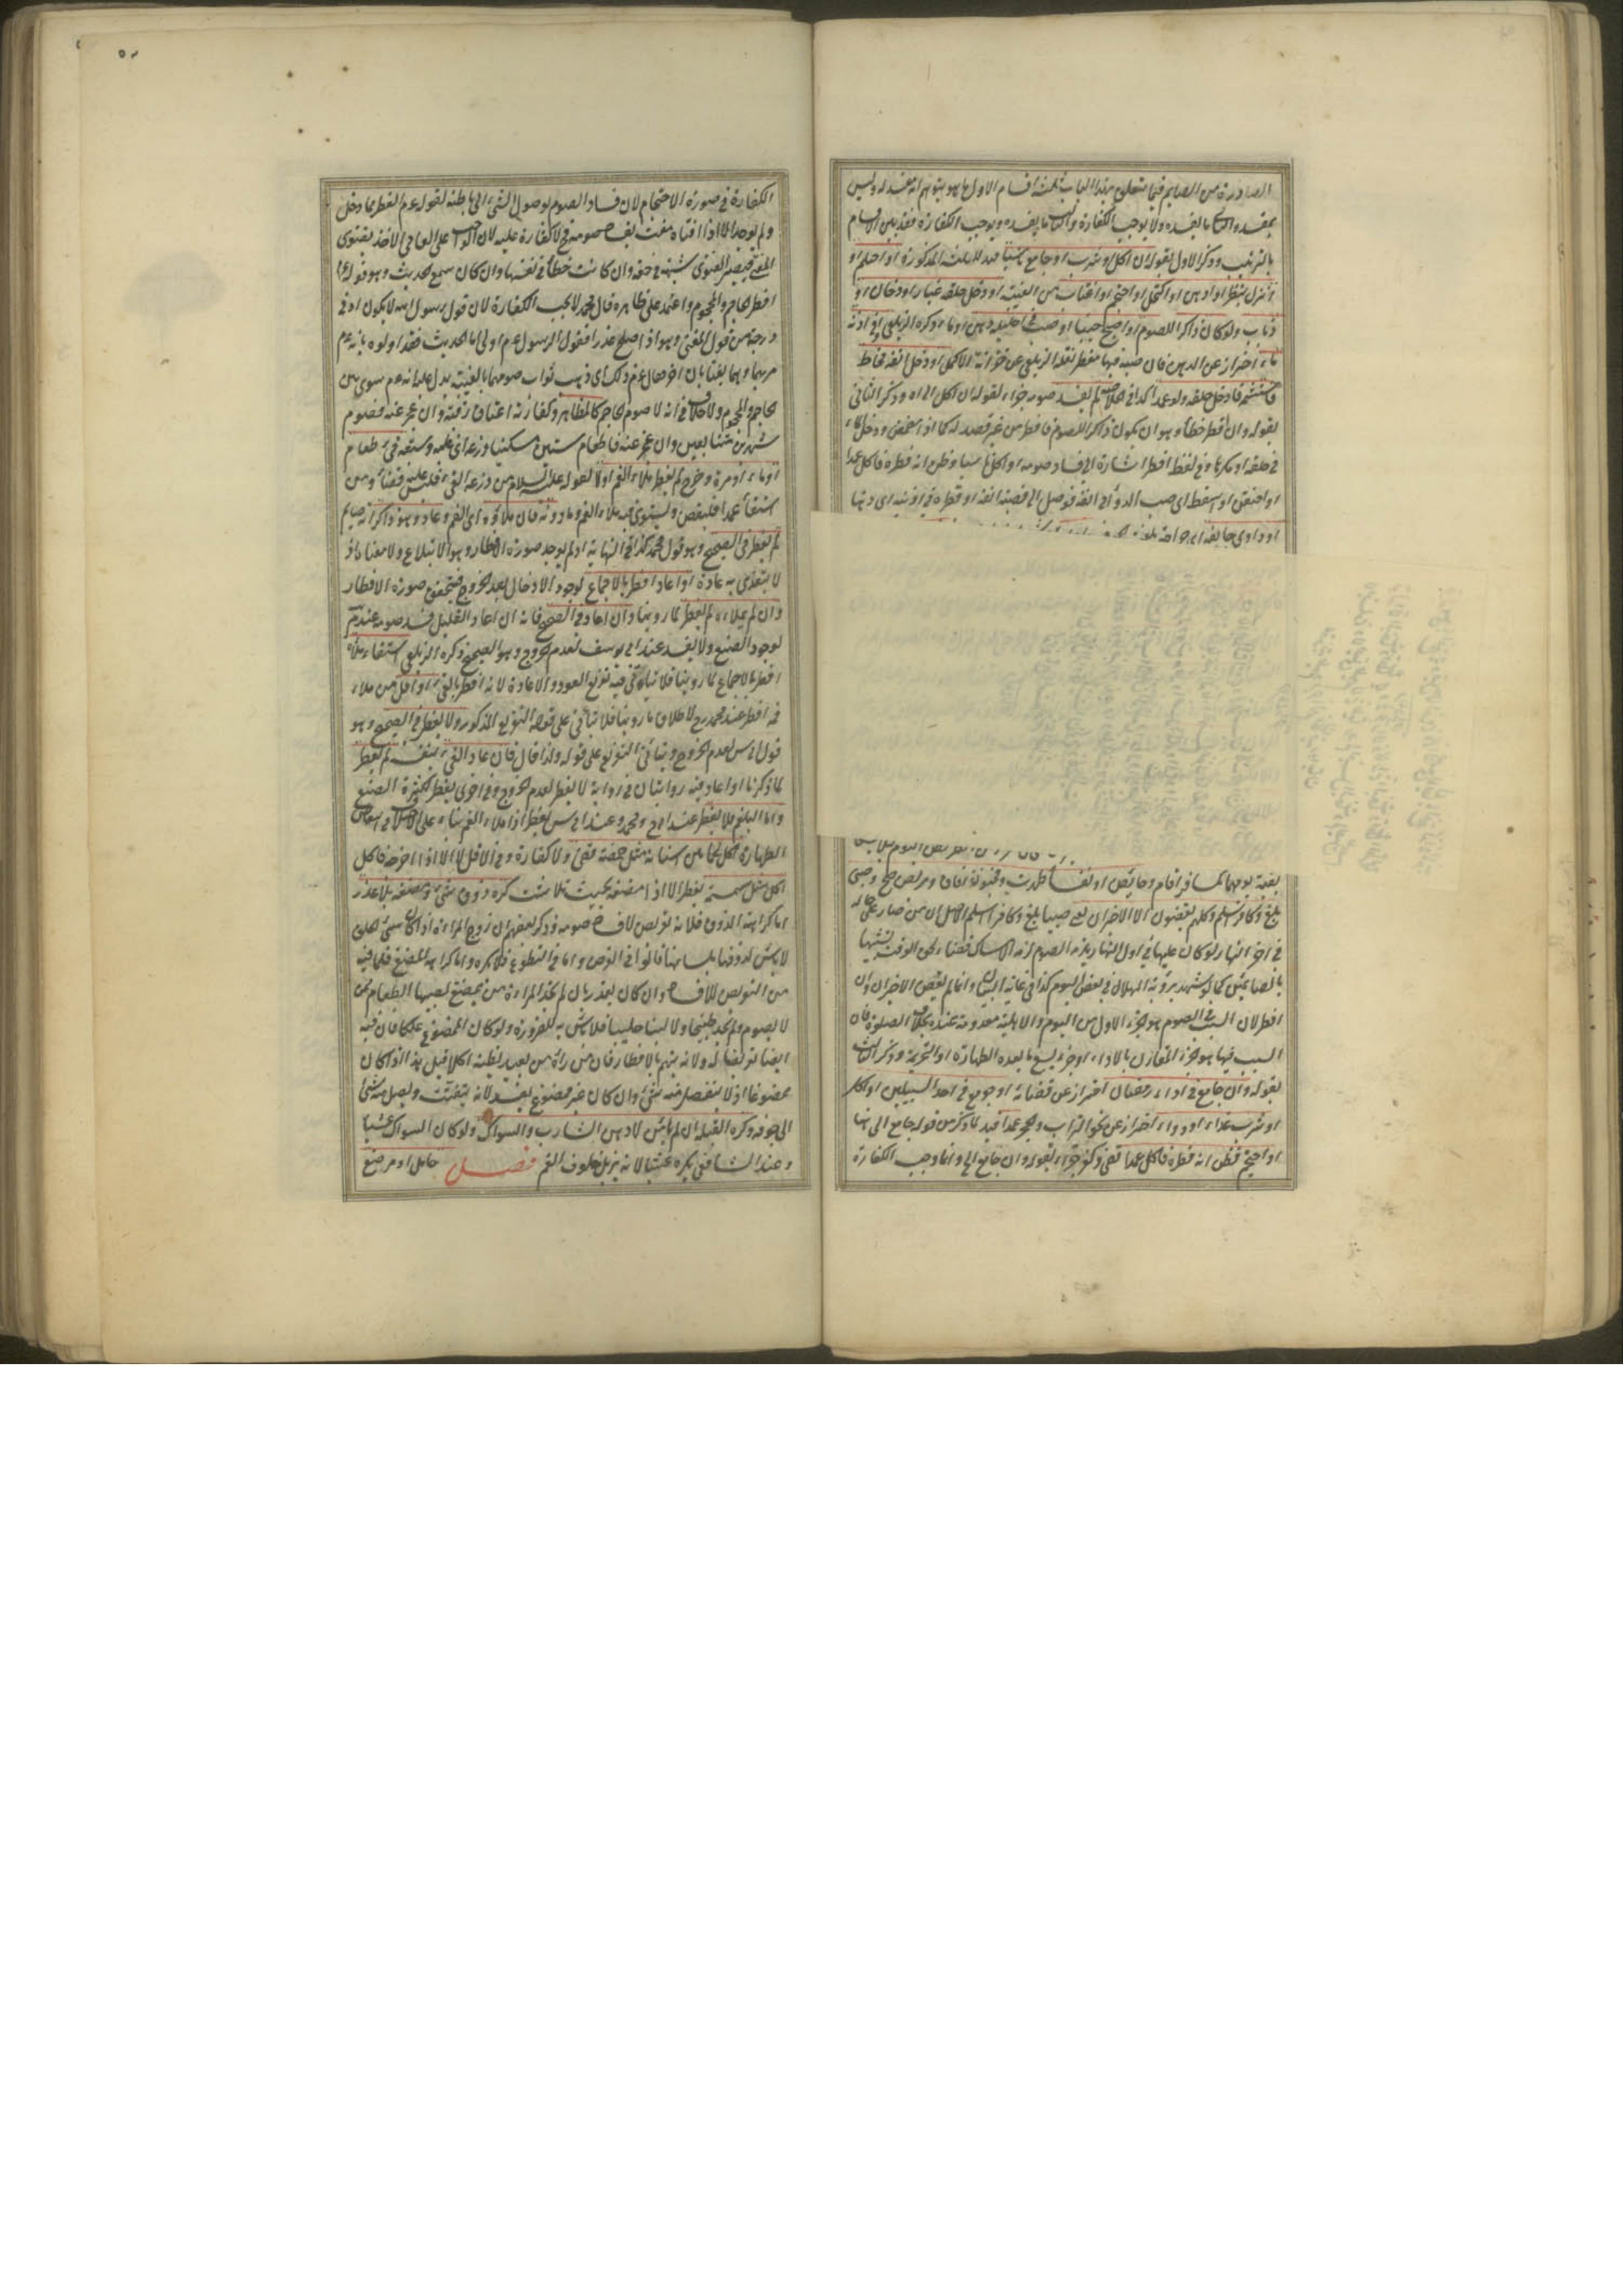 الصادرة من الصايم فيما يتعلق بهذا الباب ثلثة اقسام الاول ما هو يتوهم انه مفسد له وليس
بمفسد والثاني ما يفسده ولا يوجب الكفارة والثالث ما يفسده ويوجب الكفارة فقد بين الاقسام
بالترتيب وذكر الاول بقوله ان اكل او شرب او جامع ناسيا قيد للثلثة المذكورة او احتلم او
انزل بنظر او ادهن او اكتحل او احتجم او اغتاب من الغيبة او دخل حلقه غبار او دخان او
ذباب ولو كان ذاكرا للصوم او اصبح جنبا او صب في احليله دهن او ماء ذكره الزيلعي او في اذنه
ماء احتراز عن الدهن فان صبه فيها مفطر نقله الزيلعي عن خزانة الاكمل او دخل انفه مخاط
فاستشمه فادخل حلقه ولو عمدا كذا في الخلاصة لم يفسد صومه جزاء لقوله ان اكل الى اخره وذكر الثاني
بقوله وان افطر خطأ وهو ان يكون ذاكرا للصوم فافطر من غير قصد له كما اذا تمضمض ودخل الماء
في حلقه او مكرها وفي لفظ افطر اشارة الى فساد صومه او اكل ناسيا وظن انه فطره فاكل عمدا
او احتقن او استعط اى صب الدواء في انفه فوصل الى قصبة انفه او قطره في اذنه اى دهنا
او داوى جايفة اى جراحة بلغت
بقية يومهما كمسافر اقام وحايض او نفساء طهرت ومجنون افاق ومريض صح وصبي
بلغ وكافر اسلم وكلهم يقضون الا الاخيران يعني صبيا بلغ وكافرا اسلم الاصل ان من صار على حالة
في اخر النهار لو كان عليها في اول النهار يلزمه الصوم لزمه الامساك قضاء لحق الوقت تشبها
بالصايمين كما لو شهد برؤية الهلال في بعض اليوم كذا في غاية البيان وانما لم يقض الاخيران وان
افطر لان السبب في الصوم هو الجزء الاول من اليوم والاهلية معدومة عنده بخلاف الصلوة فان
السبب فيها هو الجزء المقارن بالاداء او جزء يسع ما بعده الطهارة والتحريمة وذكر الثالث
بقوله وان جامع في اداء رمضان احتراز عن قضائه او جومع في احد السبيلين او اكل
او شرب غذاء او دواء احتراز عن نحو التراب والحجر عمدا قيد لما ذكر من قوله جامع الى هنا
او احتجم فظن انه فطره فاكل عمدا قضى وكفر جزاء لقوله وان جامع الخ وانما وجب الكفارة
الكفارة في صورة الاحتجام لان فساد الصوم بوصول الشئ الى باطنه لقوله عم الفطر مما دخل
ولم يوجد الا اذا افتاه مفت بفساد صومه فح لا كفارة عليه لان الواجب على العامي الاخذ بفتوى
المفتي فيصير الفتوى شبهة في حقه وان كانت خطأ في نفسها وان كان سمع الحديث وهو قوله عم
افطر الحاجم والمحجوم واعتمد على ظاهره قال محمد لا يجب الكفارة لان قول رسول الله لا يكون ادنى
درجة من قول المفتي وهو اذا صلح عذرا فقول الرسول عم اولى اما الحديث فقد اولوه بانه عم
مر بهما وهما يغتابان اخر فقال عم ذلك اى ذهب ثواب صومهما بالغيبة يدل عليه انه عم سوى بين
الحاجم والمحجوم ولا خلاف في انه لا صوم الحاجم كالمظاهر وكفارته اعتاق رقبة وان عجز عنه فصوم
شهرين متتابعين وان عجز عنه فاطعام ستين مسكينا وذرعه اى غلبه وسبقه قئ طعام
او ماء او مرة وخرج لم يفطر ملاء الفم اولا لقوله عليه السلام من ذرعه القئ فليس عليه قضاء ومن
استقاء عمدا فليقض ويستوى فيه ملاء الفم وما دونه فان ملاؤه اى الفم وعاد وهو ذاكر انه صايم
لم يفطر في الصحيح وهو قول محمد كذا في النهاية اذ لم يوجد صورة الافطار وهو الابتلاع ولا معناه اذ
لا يتغذى به عادة او اعاد افطر بالاجماع لوجود الادخال بعد الخروج فتحقق صورة الافطار
وان لم يملاءه لم يفطر لما روينا وان اعاد في الصحيح فانه ان اعاد القليل فسد صومه عند محمد
لوجود الصنع ولا يفسد عند ابي يوسف لعدم الخروج وهو الصحيح ذكره الزيلعي استقاء ملاء
افطر بالاجماع لما روينا فلا يتأتى فيه تفريع العود والاعادة لانه افطر بالقئ او اقل من ملاء
فمه افطر عند محمد رح لاطلاق ما روينا فلا يتأتى على قوله التفريع المذكور ولا يفطر في الصحيح وهو
قول ابي س لعدم الخروج ويتأتى التفريع على قوله ولذا قال فان عاد القئ بنفسه لم يفطر
لما ذكرنا او اعاد فيه روايتان في رواية لا يفطر لعدم الخروج وفي اخرى يفطر لكثرة الصنع
واما البلغم فلا يفطر عند ابي ح ومحمد وعند ابي س يفطر اذا ملاء الفم بناء على اختلافهم في انتقاض
الطهارة اكل لحما بين اسنانه مثل حمصة قضى ولا كفارة وفي الاقل لا الا اذا اخرجه فاكل
اكل مثل سمسمة يفطر الا اذا مضغه بحيث تلاشت كره ذوق شئ ومضغه بلا عذر
اما كراهة الذوق فلانه تعريض لافساد صومه وذكر بعضهم ان زوج المراءة اذا كان سئ الخلق
لا باس لذوقها بلسانها قالوا في الفرض واما في التطوع فلا يكره واما كراهة المضغ فلما فيه
من التعريض للافساد وان كان بعذر بان لم يجد المراءة من يمضغ لصبيها الطعام ممن
لا يصوم ولم تجد طبيخا ولا لبنا حليبا فلا باس به للضرورة ولو كان الممضوغ علكا فان فيه
ايضا تعريضا له ولانه يتهم بالافطار فان من رآه من بعيد يظنه اكلا قيل هذا اذا كان
ممضوغا اذ لا ينفصل منه شئ وان كان غير ممضوغ يفسد لانه يتفتت ويصل منه شئ
الى جوفه وكره القبلة ان لم يامن لا دهن الشارب والسواك ولو كان السواك عشيا
وعند الشافعي يكره عشيا لانه يزيل خلوف الفم فصل حامل او مرضع